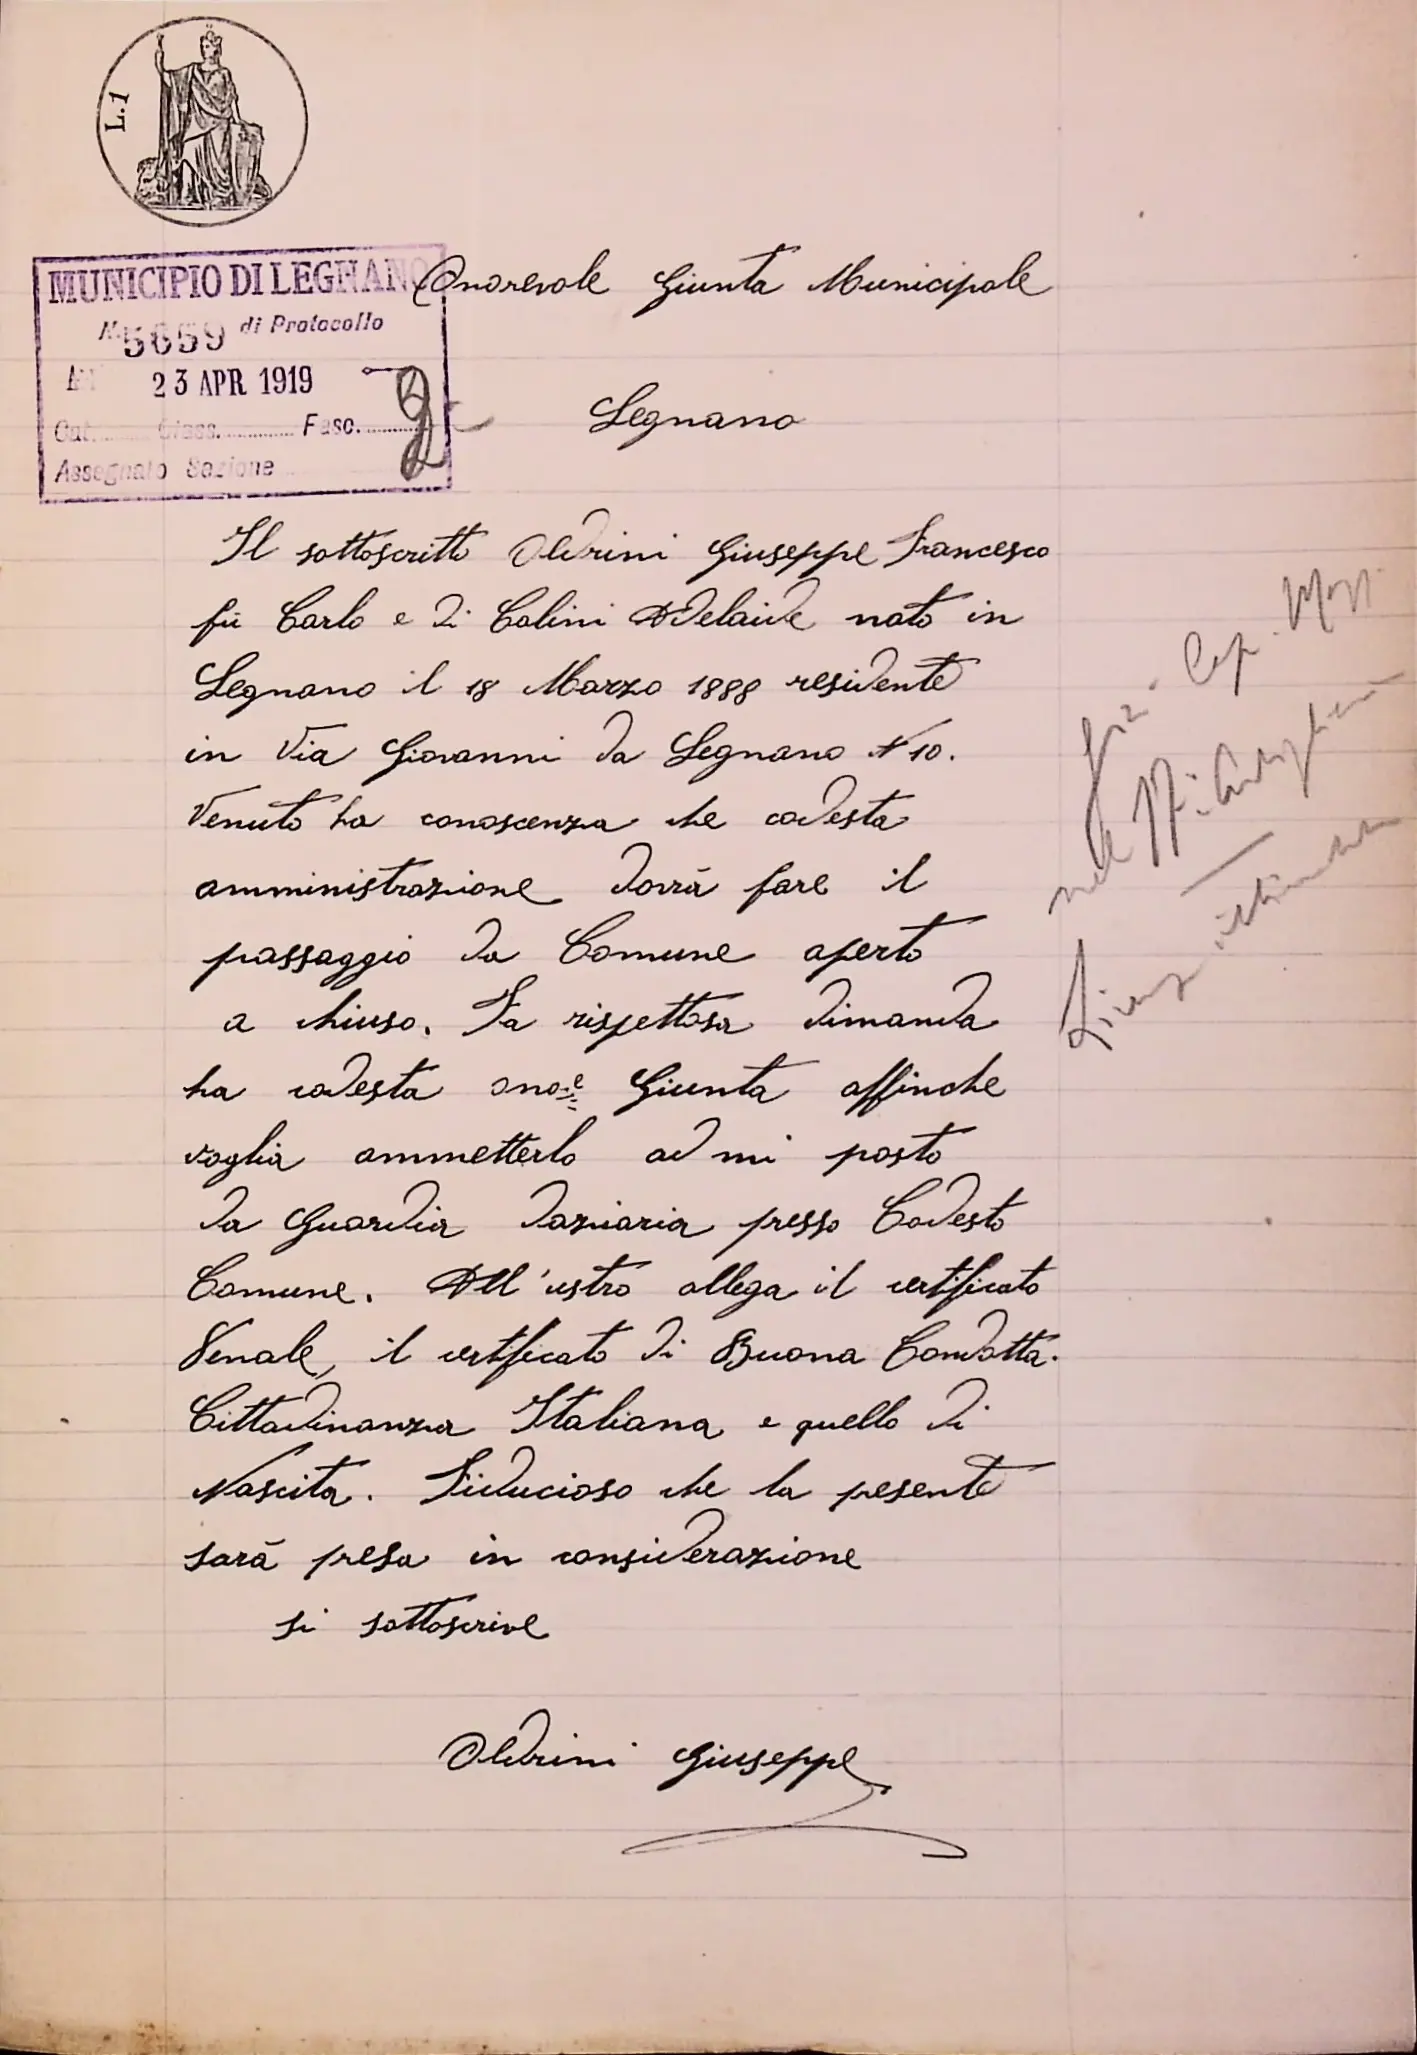 L.1
MUNICIPIO DI LEGNANO
N. 5659 di Protocollo
23 APR 1919
Cat. Class. Fasc.
Assegnato Sezione
Onorevole Giunta Municipale
Legnano
Il sottoscritto Oldrini Giuseppe Francesco
fù Carlo e di Colini Adelaide nato in
Legnano il 18 Marzo 1888 residente
in Via Giovanni da Legnano N 10.
Venuto ha conoscenza che codesta
amministrazione dovrà fare il
passaggio da Comune aperto
a chiuso. Fa rispettosa dimanda
ha codesta onor.e Giunta affinche
voglia ammetterlo ad un posto
da Guardia daziaria presso Codesto
Comune. All'ustro allega il certificato
Penale, il certificato di Buona Condotta.
Cittadinanza Italiana e quello di
Nascita. Fiducioso che la pesente
sarà presa in considerazione
si sottoscrive
Oldrini Giuseppe